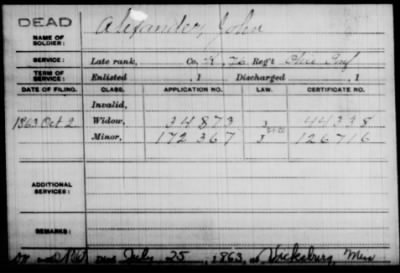 DEAD
NAME OF SOLDIER:
Alexander, John
SERVICE:
Late rank, Co. K, 76 Reg't Ohio Inf
TERM OF SERVICE:
Enlisted , 1 Discharged , 1
DATE OF FILING. CLASS. APPLICATION NO. LAW. CERTIFICATE NO.
Invalid,
1863 Oct 2 Widow, 34873 44338
Minor, 172367 126716
ADDITIONAL SERVICES:
REMARKS:
died July 25, 1863, at Vicksburg, Miss